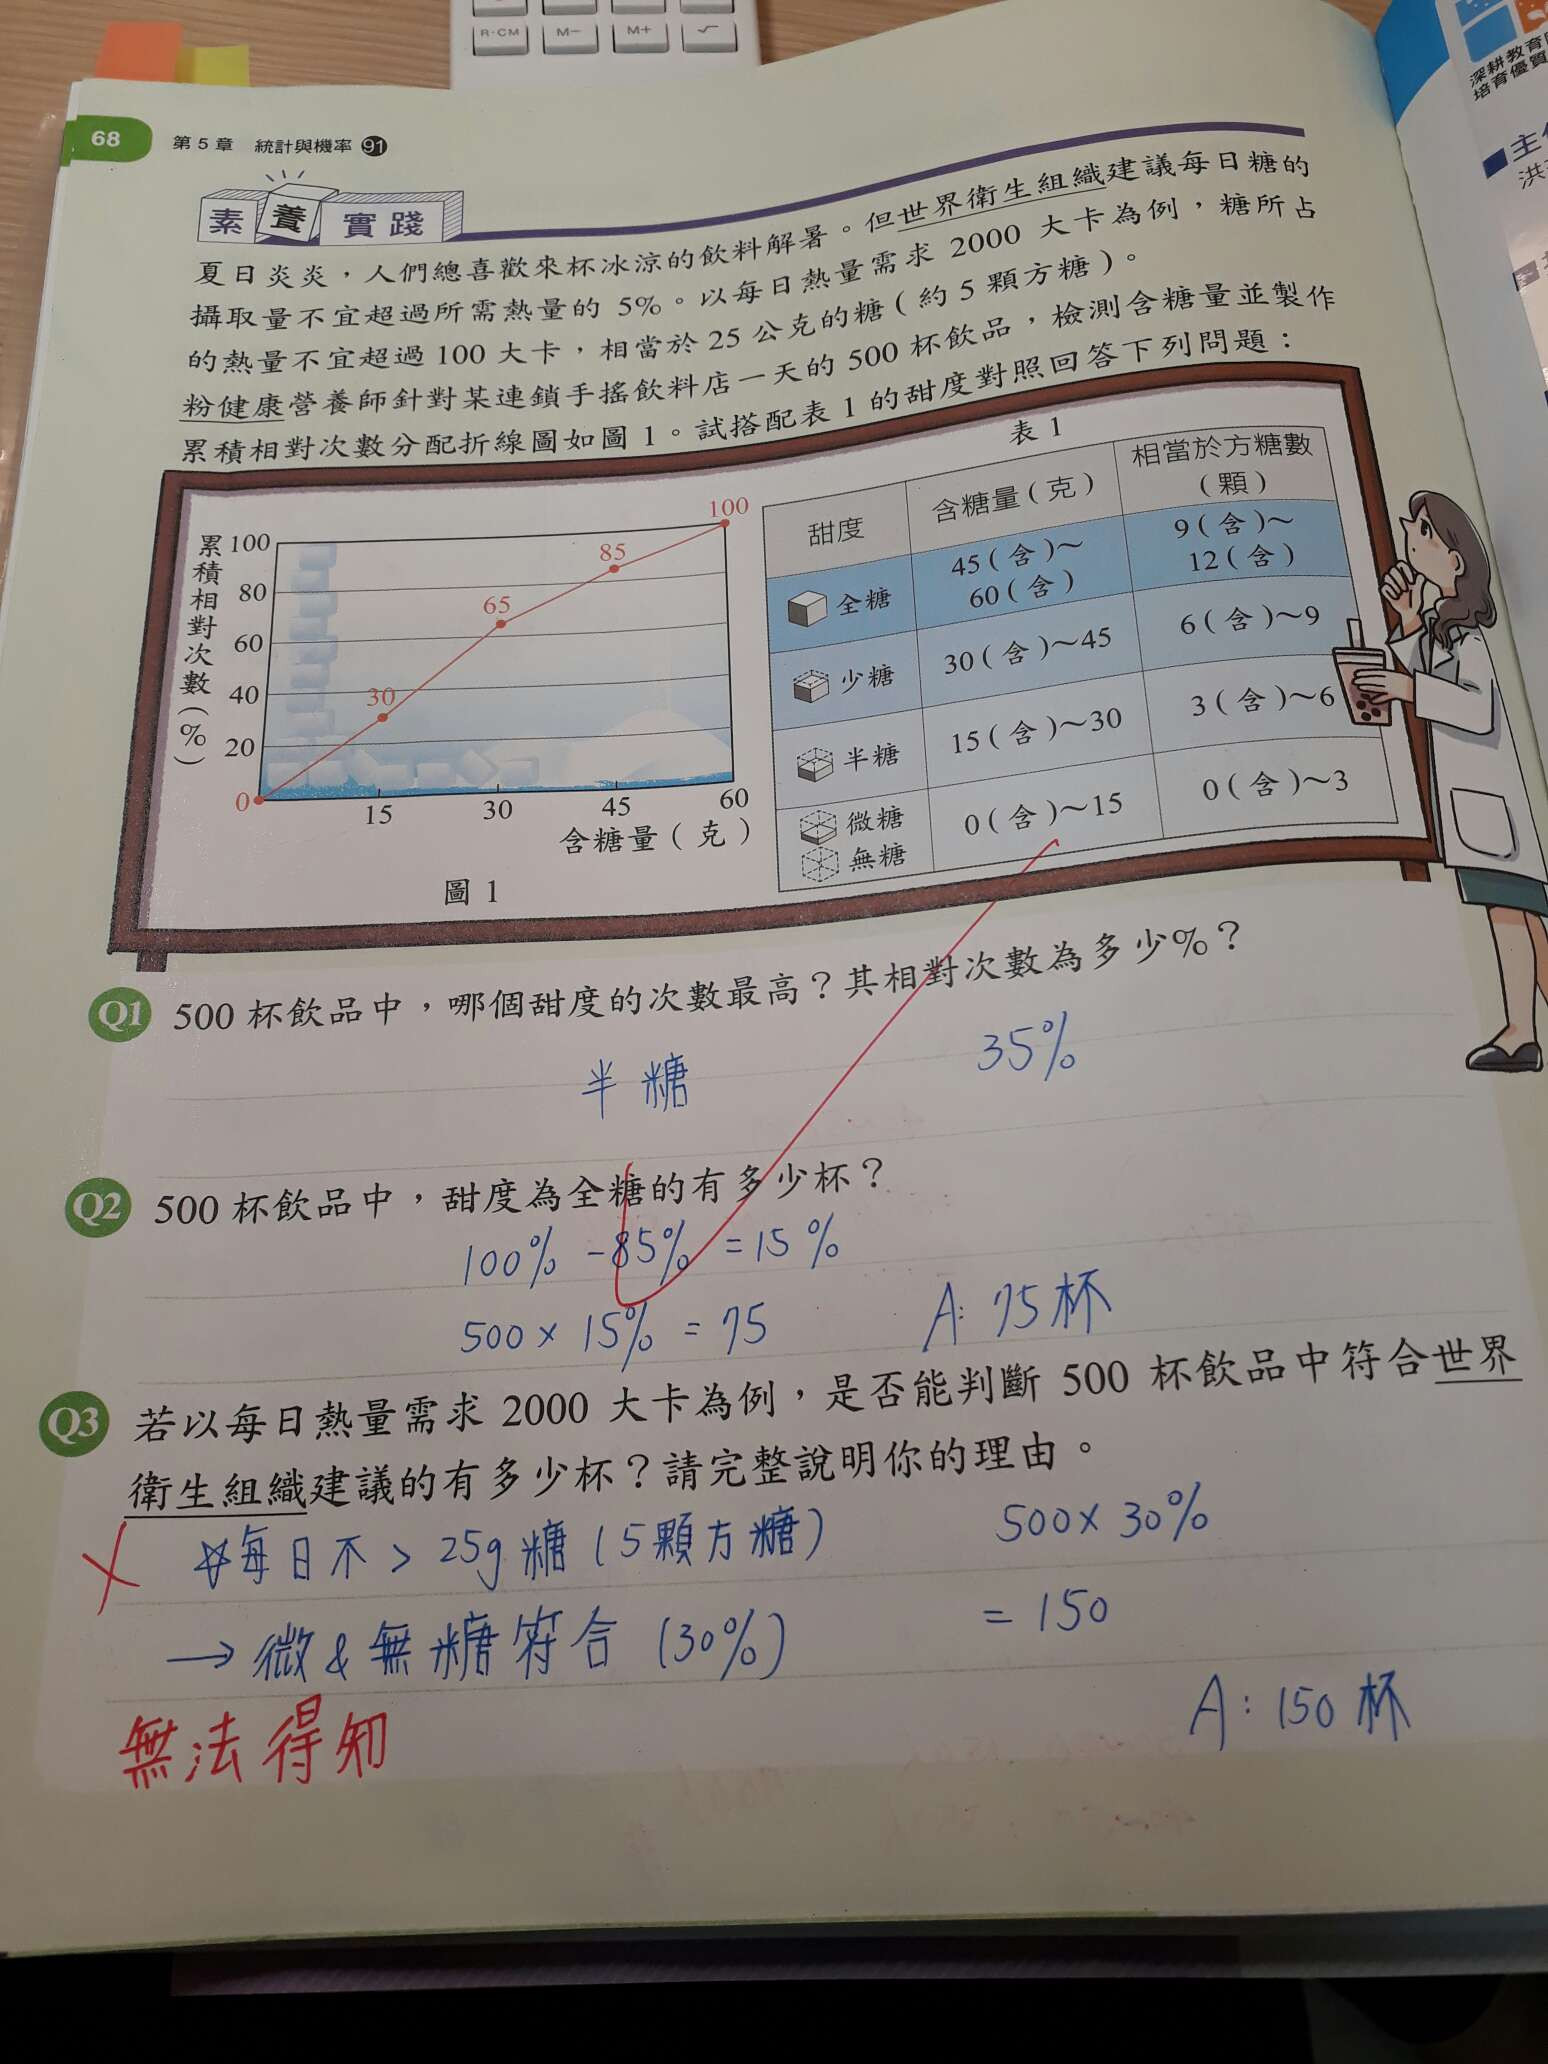 R·CM M− M+ √
深耕教育
培育優質
主
洪
68 第5章 統計與機率 91
素養實踐
夏日炎炎，人們總喜歡來杯冰涼的飲料解暑。但世界衛生組織建議每日糖的
攝取量不宜超過所需熱量的 5%。以每日熱量需求 2000 大卡為例，糖所占
的熱量不宜超過 100 大卡，相當於 25 公克的糖（約 5 顆方糖）。
粉健康營養師針對某連鎖手搖飲料店一天的 500 杯飲品，檢測含糖量並製作
累積相對次數分配折線圖如圖 1。試搭配表 1 的甜度對照回答下列問題：
累積相對次數（%）
100
80
60
40
20
0
30
65
85
100
15 30 45 60
含糖量（克）
圖 1
表 1
甜度 含糖量（克） 相當於方糖數（顆）
全糖 45（含）～60（含） 9（含）～12（含）
少糖 30（含）～45 6（含）～9
半糖 15（含）～30 3（含）～6
微糖 無糖 0（含）～15 0（含）～3
Q1 500 杯飲品中，哪個甜度的次數最高？其相對次數為多少%？
半糖 35%
Q2 500 杯飲品中，甜度為全糖的有多少杯？
100% -85% = 15%
500 × 15% = 75 A: 75杯
Q3 若以每日熱量需求 2000 大卡為例，是否能判斷 500 杯飲品中符合世界
衛生組織建議的有多少杯？請完整說明你的理由。
☆每日不 > 25g 糖 (5顆方糖) 500× 30%
→ 微&無糖符合 (30%) = 150
無法得知 A: 150杯